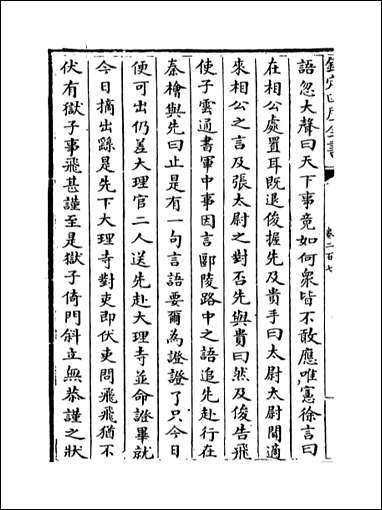 欽定四庫全書
卷二百七
語忽大聲曰天下事竟如何衆皆不敢應唯憲徐言曰
在相公處置耳既退俊握先及貴手曰太尉太尉間適
來相公之言及張太尉之對否先與貴曰然及俊告飛
使子雲通書軍中事因言郾陵路中之語追先赴行在
秦檜與先曰止是有一句言語要爾為證證了只今日
便可出仍差大理官二人送先赴大理寺並命證畢就
今日摘出繇是先下大理寺對吏即伏吏問飛飛猶不
伏有獄子事飛甚謹至是獄子倚門斜立無恭謹之狀